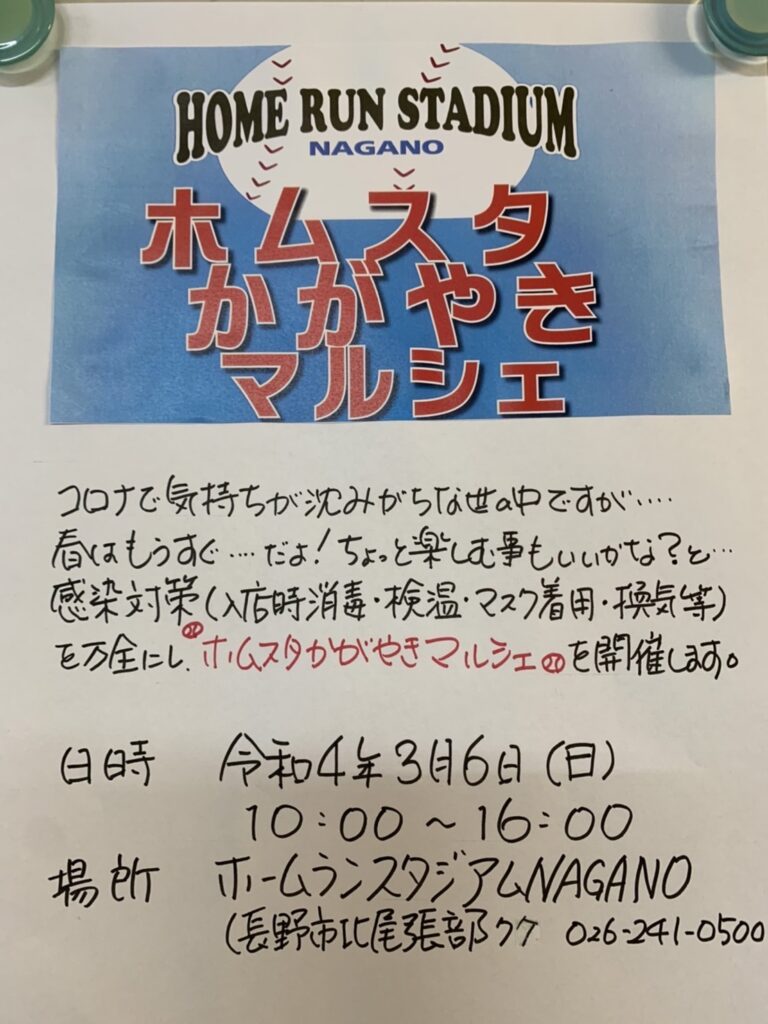 HOME RUN STADIUM
NAGANO
ホムスタ
かがやき
マルシェ
コロナで気持ちが沈みがちな世の中ですが‥‥
春はもうすぐ‥‥だよ！ちょっと楽しむ事もいいかな？と‥
感染対策(入店時消毒・検温・マスク着用・換気等)
を万全にし、ホムスタかがやきマルシェを開催します。
日時 令和4年3月6日(日)
10:00～16:00
場所 ホームランスタジアムNAGANO
(長野市北尾張部77 026-241-0500